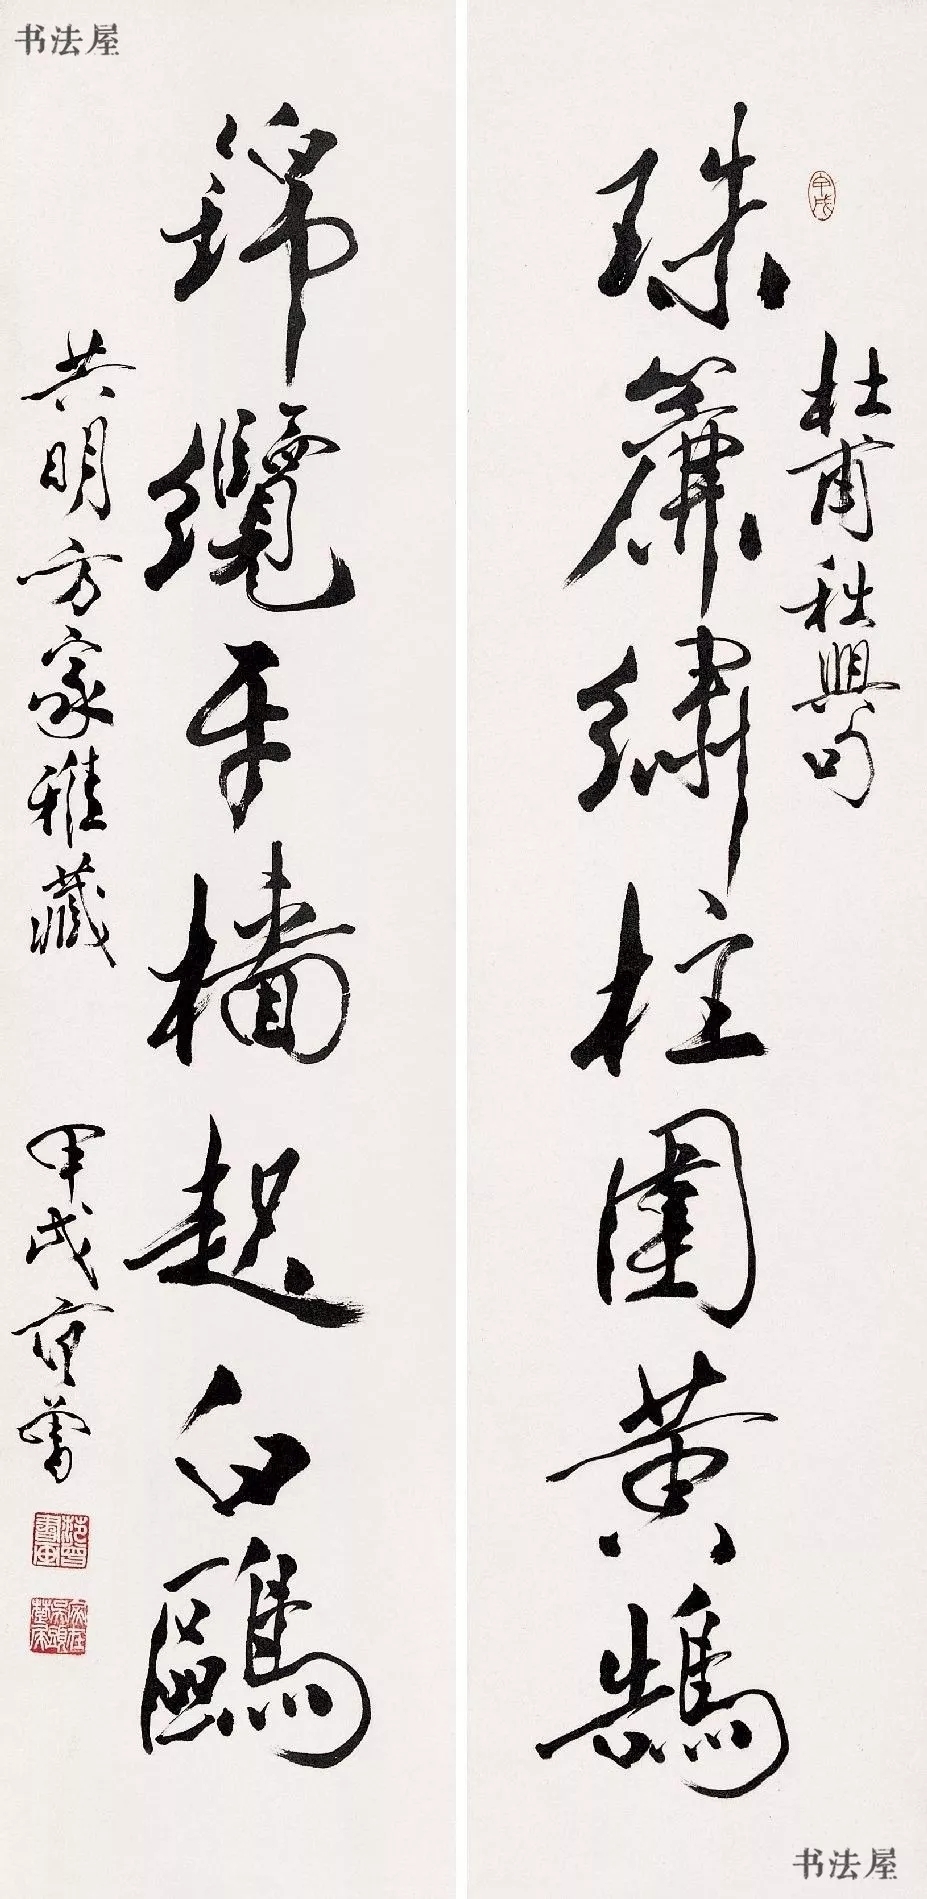 书法屋
杜甫秋興句
甲戌
珠簾繡柱圍黃鵠
錦纜牙檣起白鷗
共明方家雅藏 甲戌 范曾
书法屋